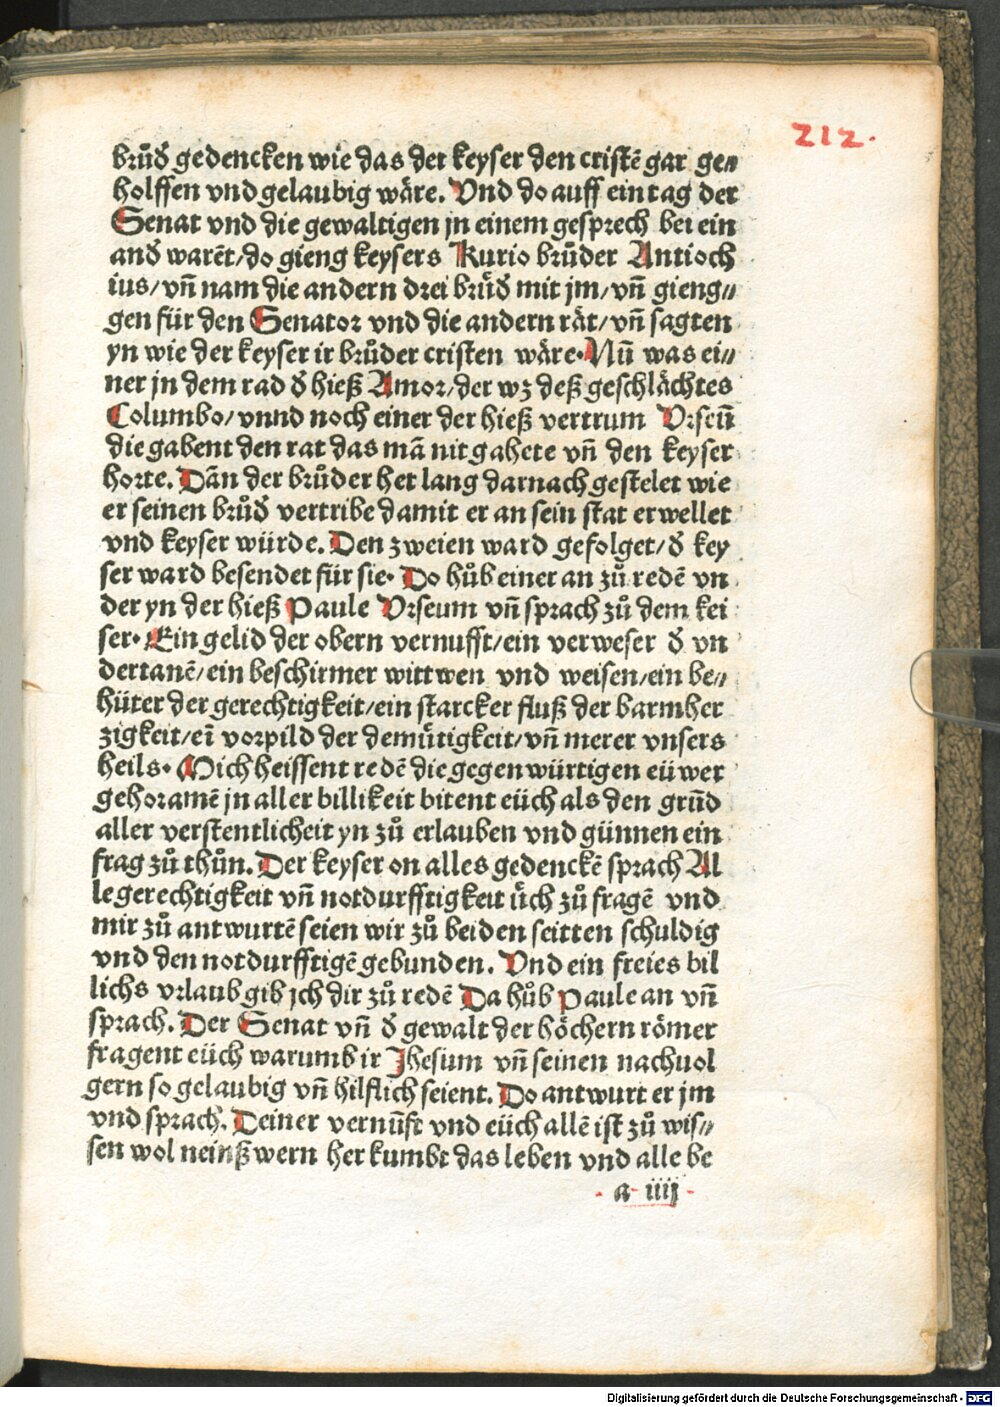 212.
brůď gedencken wie das der keyser den cristē gar ge⸗
holffen vnd gelaubig wåre. Vnd do auff ein tag der
Senat vnd die gewaltigen jn einem gesprech bei ein
anď warēt/do gieng keysers Kurio brůder Antioch
ius/vñ nam die andern drei brůď mit jm/vñ gieng⸗
gen für den Senator vnd die andern råt/vñ sagten
yn wie der keyser ir brůder cristen wåre. Nū was ei⸗
ner jn dem rad ď hieß Amor/der wz deß geschlåchtes
Columbo/vnnd noch einer der hieß vertrum Vrseū
die gabent den rat das mā nit gahete vñ den keyser
horte. Dān der brůder het lang darnach gestelet wie
er seinen brůď vertribe damit er an sein stat erwellet
vnd keyser würde. Den zweien ward gefolget/ď key
ser ward besendet für sie. Do hůb einer an zů redē vn
der yn der hieß Paule Vrseum vñ sprach zů dem kei
ser. Ein gelid der obern vernufft/ein verweser ď vn
dertanē/ein beschirmer wittwen vnd weisen/ein be⸗
hüter der gerechtigkeit/ein starcker fluß der barmher
zigkeit/eī vorpild der demütigkeit/vñ merer vnsers
heils. Mich heissent redē die gegenwürtigen eüwer
gehoramē jn aller billikeit bitent eüch als den grūd
aller verstentlicheit yn zů erlauben vnd günnen ein
frag zů thůn. Der keyser on alles gedenckē sprach Al
le gerechtigkeit vñ notdurfftigkeit üch zů fragē vnd
mir zů antwurtē seien wir zů beiden seitten schuldig
vnd den notdurfftigē gebunden. Vnd ein freies bil
lichs vrlaub gib jch dir zů redē Da hůb Paule an vñ
sprach. Der Senat vñ ď gewalt der höchern römer
fragent eüch warumb ir Jhesum vñ seinen nachuol
gern so gelaubig vñ hilflich seient. Do antwurt er jm
vnd sprach. Deiner vernūft vnd eüch allē ist zů wis⸗
sen wol neinß wern her kumbt das leben vnd alle be
a iiij
Digitalisierung gefördert durch die Deutsche Forschungsgemeinschaft - DFG